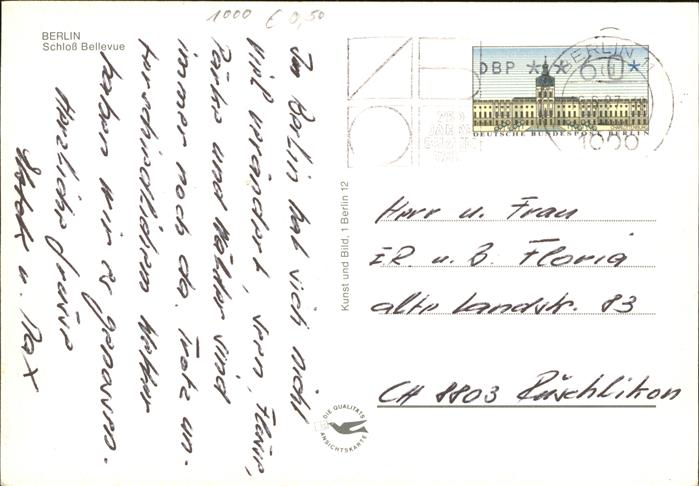 1000 € 0,50
BERLIN
Schloß Bellevue
In Berlin hat sich nicht
viel verändert,
Parks und Wälder sind
immer noch da. Trotz un-
terschiedlichem Wetter
haben wir es genossen.
Herzliche Grüsse
u. Max
Kunst und Bild, 1 Berlin 12
DIE QUALITÄTS
ANSICHTSKARTE
750
DBP 60
BERLIN
1000
DEUTSCHE BUNDESPOST BERLIN
Herr u. Frau
E.R. u. B. Floria
alte Landstr. 83
CH 8803 Rüschlikon